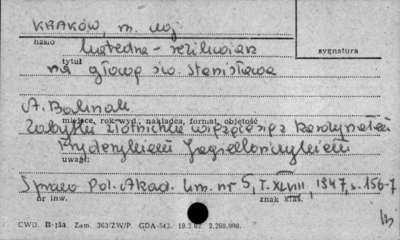 KRAKÓW, m. woj
hasło
katedra - relikwiarz
sygnatura
tytuł
na głowę św. Stanisława
A. Bochnak
miejsce, rok wyd., nakładca, format, objętość
Zabytki złotnicze związane z kardynałem
Fryderykiem Jagiellończykiem
uwagi:
Spraw. Pol. Akad. Um. nr 5, T. XLVIII, 1947, s. 156-7
nr inw.
znak klas.
CWD. B-15a. Zam. 363/ZW/P. GDA-543. 19.2.62. 2.260.000.